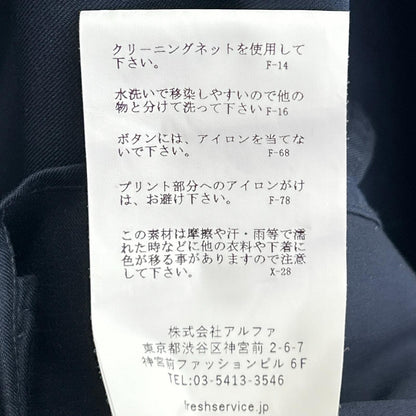 クリーニングネットを使用して
下さい。 F-14
水洗いで移染しやすいので他の
物と分けて洗って下さい F-16
ボタンには、アイロンを当てな
いで下さい。 F-68
プリント部分へのアイロンがけ
は、お避け下さい。 F-78
この素材は摩擦や汗・雨等で濡
れた時などに他の衣料や下着に
色が移る事がありますので注意
して下さい。 X-28
株式会社アルファ
東京都渋谷区神宮前 2-6-7
神宮前ファッションビル 6F
TEL:03-5413-3546
freshservice.jp